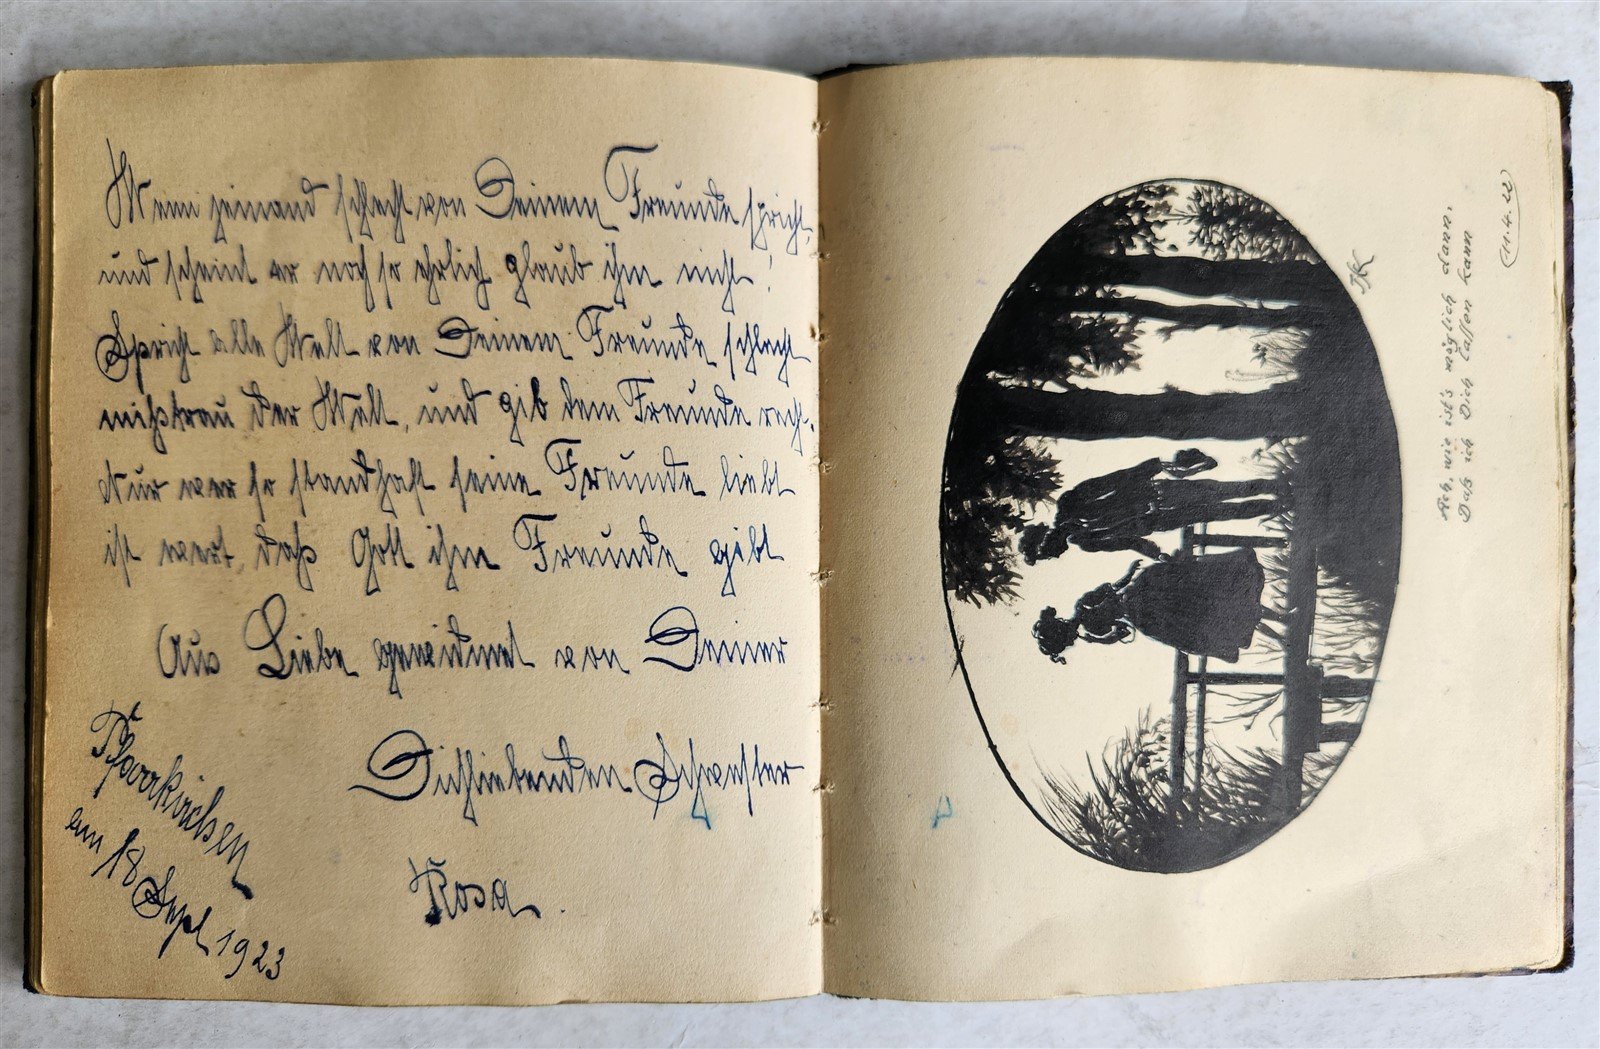 Wenn jemand schlecht von Deinem Freunde spricht,
und scheint er noch so ehrlich glaub ihm nicht!
Spricht alle Welt von Deinem Freunde schlecht
mißtrau der Welt, und gib dem Freunde recht.
Nur wer so standhaft seine Freunde liebt
ist wert, daß Gott ihm Freunde gibt
Aus Liebe gewidmet von Deiner
Dichliebenden Schwester
Rosa.
Pfarrkirchen
am 18 Sept 1923
Ach, wie ist's möglich dann,
Daß ich Dich lassen kann
(11.4.22)